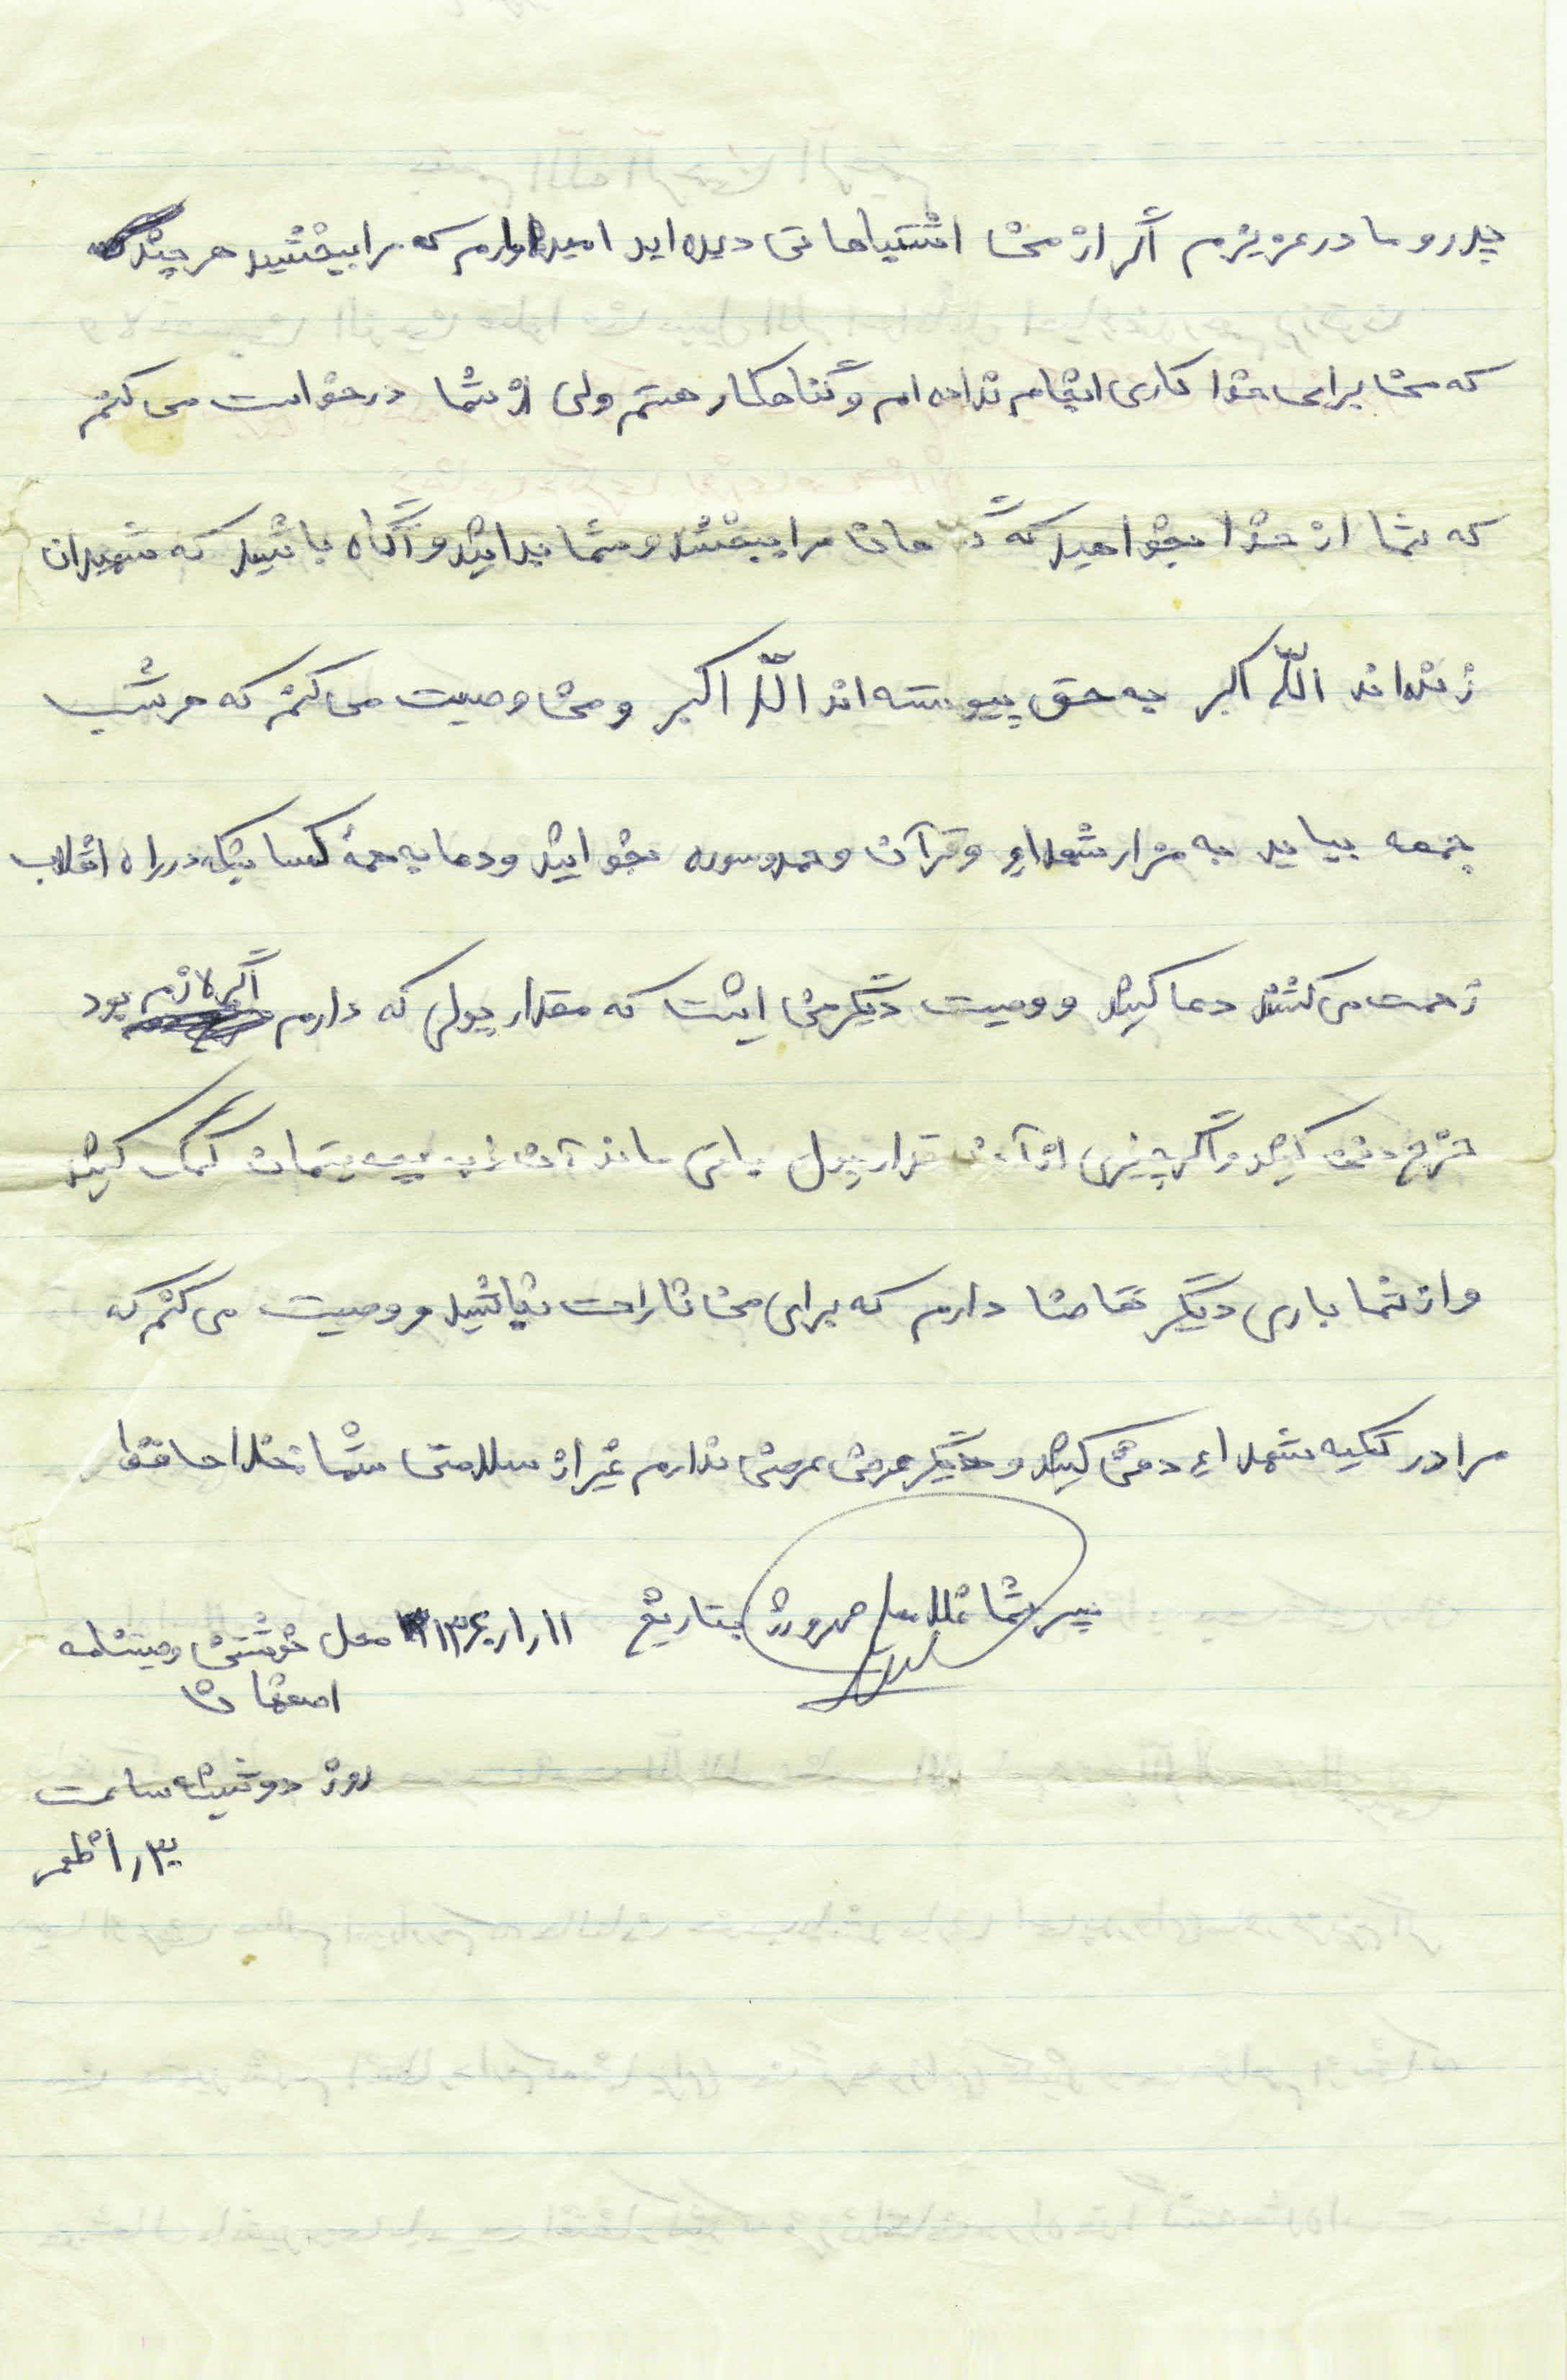 پدر و مادر عزیزم اگر از من اشتباهاتی دیده اید امیدوارم که مرا ببخشید هر چند
که من برای خدا کاری انجام نداده ام و گناهکار هستم ولی از شما درخواست می کنم
که شما از خدا بخواهید که گناهان مرا ببخشد و شما بدانید و آگاه باشید که شهیدان
زنده اند الله اکبر به حق پیوسته اند الله اکبر و من وصیت می کنم که هر شب
جمعه بیاید به مزار شهداء و قرآن و حمد و سوره بخوانید و دعا به همهٔ کسانیکه در راه انقلاب
زحمت می کشند دعا کنید و وصیت دیگر من اینست که مقدار پولی که دارم اگر لازم بود
خرج دفن کنید و اگر چیزی از آن مقدار پول باقی ماند آن را به یتیمان کمک کنید
و از شما باری دیگر تقاضا دارم که برای من ناراحت نباشید و وصیت می کنم که
مرا در تکیه شهداء دفن کنید و دیگر عرضی ندارم غیر از سلامتی شما خداحافظ
پسر شما بتاریخ محل نوشتن وصیتنامه
اصفهان
روز دوشنبه ساعت
ظهر